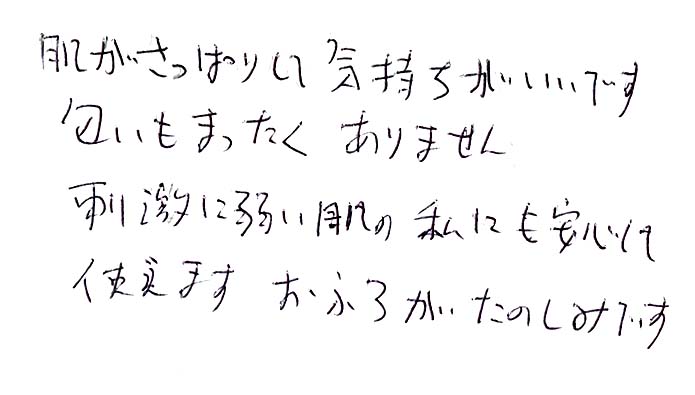 肌がさっぱりして気持ちがいいです
匂いもまったくありません
刺激に弱い肌の私にも安心して
使えます おふろがたのしみです